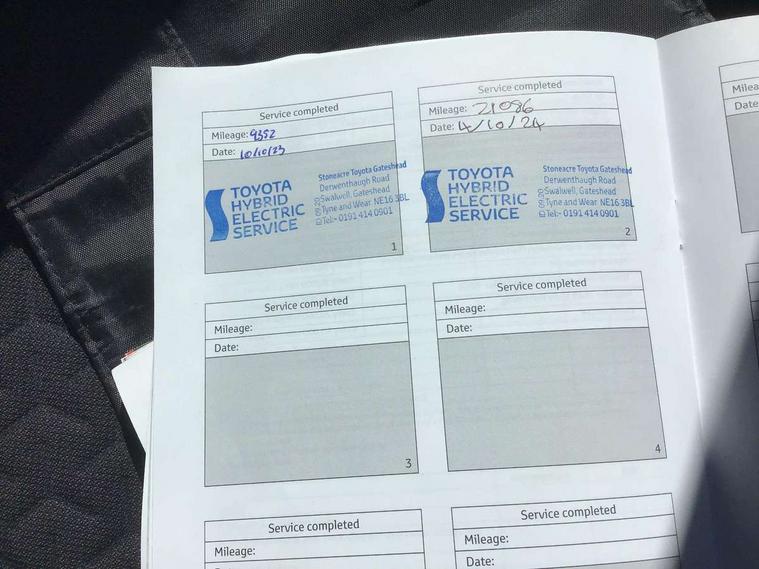 Service completed
Mileage: 9352
Date: 10/10/23
TOYOTA
HYBRID
ELECTRIC
SERVICE
Stoneacre Toyota Gateshead
Derwenthaugh Road
Swalwell, Gateshead
Tyne and Wear NE16 3BL
Tel:- 0191 414 0901
1
Service completed
Mileage: 21086
Date: 4/10/24
TOYOTA
HYBRID
ELECTRIC
SERVICE
Stoneacre Toyota Gateshead
Derwenthaugh Road
Swalwell, Gateshead
Tyne and Wear NE16 3BL
Tel:- 0191 414 0901
2
Service completed
Mileage:
Date:
3
Service completed
Mileage:
Date:
4
Service completed
Mileage:
Service completed
Mileage:
Date:
Date: